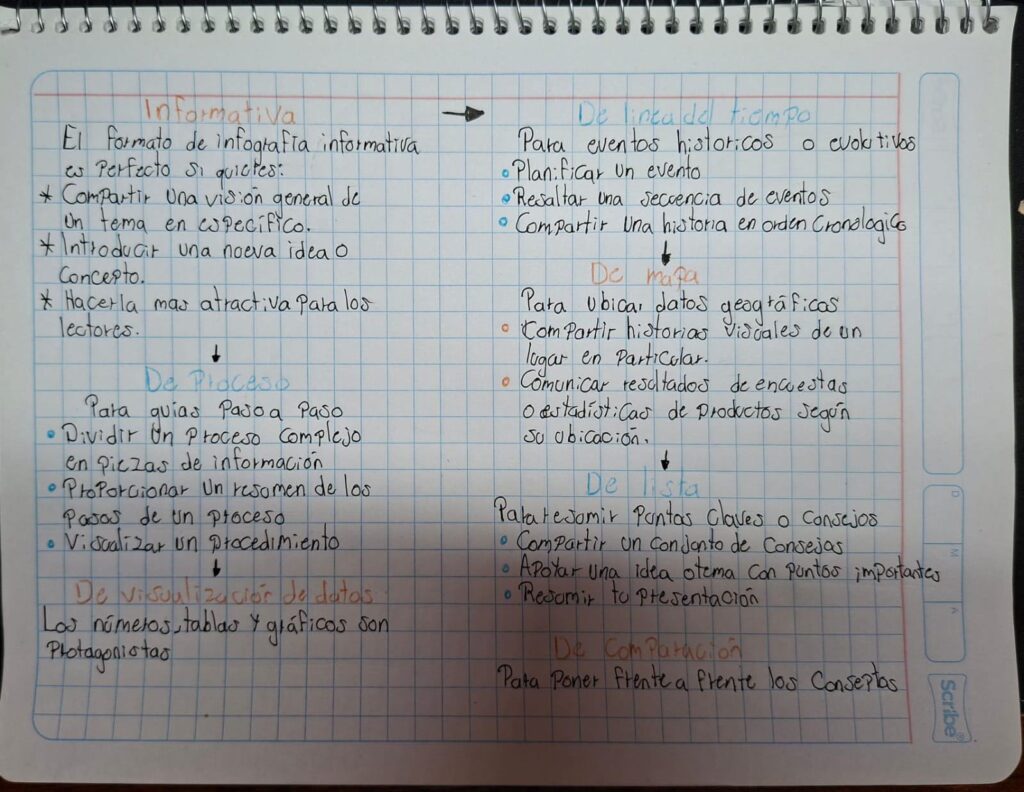 Informativa
El formato de infografía informativa
es perfecto si quieres:
* Compartir una visión general de
un tema en específico.
* Introducir una nueva idea o
concepto.
* Hacerla mas atractiva para los
lectores.
De Proceso
Para guías Paso a Paso
• Dividir un proceso complejo
en piezas de información
• Proporcionar un resumen de los
pasos de un proceso
• Visualizar un procedimiento
De visualización de datos
Los números, tablas y gráficos son
Protagonistas
De linea del tiempo
Para eventos historicos o evolutivos
• Planificar un evento
• Resaltar una secuencia de eventos
• Compartir una historia en orden Cronologico
De mapa
Para ubicar datos geográficos
• Compartir historias visuales de un
lugar en particular.
• Comunicar resultados de encuestas
o estadísticas de productos según
su ubicación.
De lista
Para resumir Puntos Claves o Consejos
• Compartir un conjunto de Consejos
• Apoyar una idea o tema con puntos importantes
• Resumir tu presentación
De Comparación
Para Poner frente a frente los Conseptos
D
M
A
Scribe®